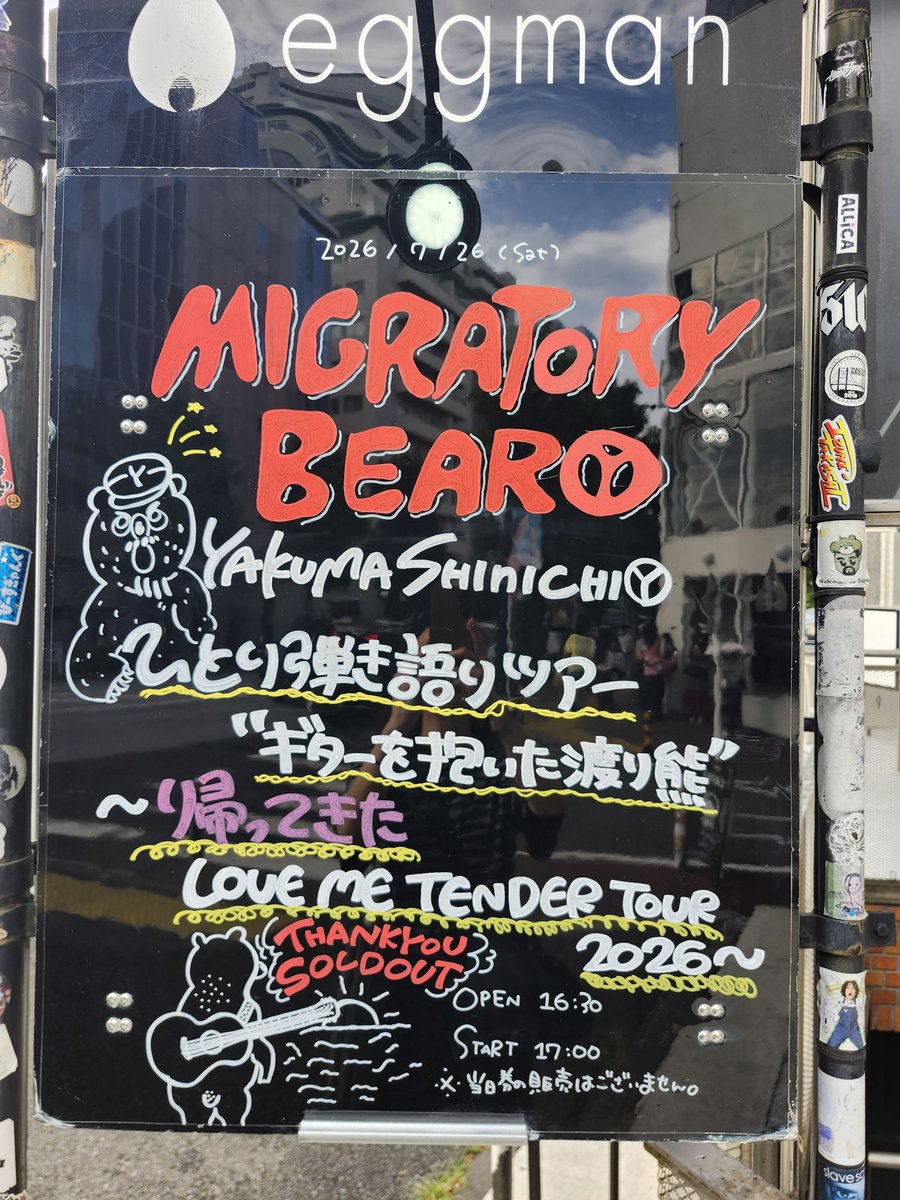 eggman
2026/7/26 (Sat)
MIGRATORY
BEARⓎ
YAKUMA SHINICHIⓎ
ひとり弾き語りツアー
"ギターを抱いた渡り熊"
～帰ってきた
LOVE ME TENDER TOUR
2026～
THANKYOU
SOLDOUT
OPEN 16:30
START 17:00
※当日券の販売はございません。
ALLiCA